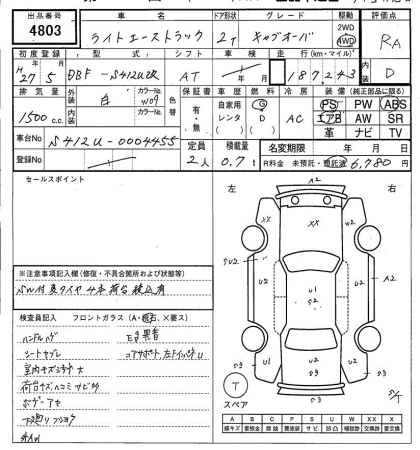 出品番号 車名 ドア形状 グレード 駆動 評価点
4803 ライトエーストラック 2T キャブオーバ 2WD 4WD RA
初度登録 型式 シフト 車検 走行(km・マイル) 内装 D
H27 5 DBF-S412U改 AT 187,243
排気量 外装 白 カラーNo. W09 色替 保証書 車歴 燃料 冷房 装備(純正部品に限る)
1500 c.c. 内装 カラーNo. 有・無 自家用 レンタ G D AC PS PW ABS
エアB AW SR
革 ナビ TV
車台No S412U-0004455 定員 積載量 名変期限 年 月 日
登録No 2人 0.7t R料金 未預託・預託済 6,780 円
セールスポイント
左 右
A2
XX XX W2
SU2 U2 U2 S2 U2 A2
U1 U2 U2
S3 S3 S3
T
スペア
※注意事項記入欄(修復・不具合箇所および状態等)
SW付 夏タイヤ4本荷台積込有
検査員記入 フロントガラス(A・飛石、×要ス)
ハンドルハゲ 異音
シートヤブレ コアサポート、左
室内キズ汚れ大
荷台キズヘコミサビ
ボデーアセ
A B C P S U W X XX
線キズ 要板金 腐蝕 要塗装 サビ 凹凸 補修跡 交換跡 要交換